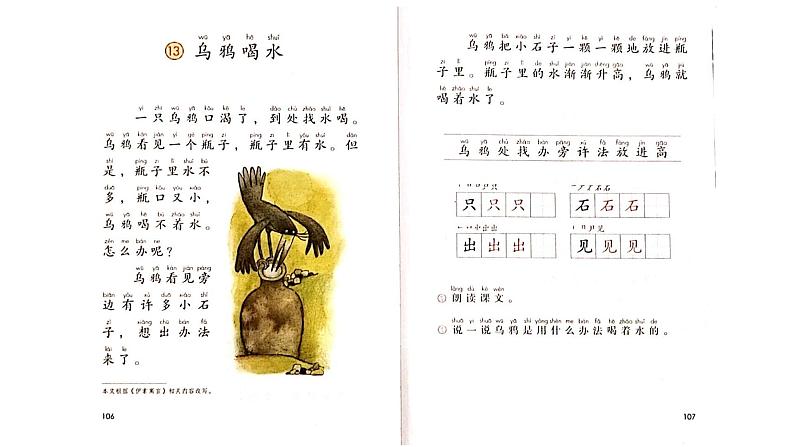 wū yā hē shuǐ
13 乌鸦喝水
yì zhī wū yā kǒu kě le dào chù zhǎo shuǐ hē
一只乌鸦口渴了，到处找水喝。
wū yā kàn jiàn yí gè píng zi píng zi lǐ yǒu shuǐ dàn
乌鸦看见一个瓶子，瓶子里有水。但
shì píng zi lǐ shuǐ bù
是，瓶子里水不
duō píng kǒu yòu xiǎo
多，瓶口又小，
wū yā hē bù zháo shuǐ
乌鸦喝不着水。
zěn me bàn ne
怎么办呢？
wū yā kàn jiàn páng
乌鸦看见旁
biān yǒu xǔ duō xiǎo shí
边有许多小石
zǐ xiǎng chū bàn fǎ
子，想出办法
lái le
来了。
本文根据《伊索寓言》相关内容改写。
106
wū yā bǎ xiǎo shí zǐ yì kē yì kē de fàng jìn píng
乌鸦把小石子一颗一颗地放进瓶
zi lǐ píng zi lǐ de shuǐ jiàn jiàn shēng gāo wū yā jiù
子里。瓶子里的水渐渐升高，乌鸦就
hē zháo shuǐ le
喝着水了。
wū yā chù zhǎo bàn páng xǔ fǎ fàng jìn gāo
乌鸦处找办旁许法放进高
只只只 石石石
出出出 见见见
lǎng dú kè wén
朗读课文。
shuō yì shuō wū yā shì yòng shén me bàn fǎ hē zháo shuǐ de
说一说乌鸦是用什么办法喝着水的。
107